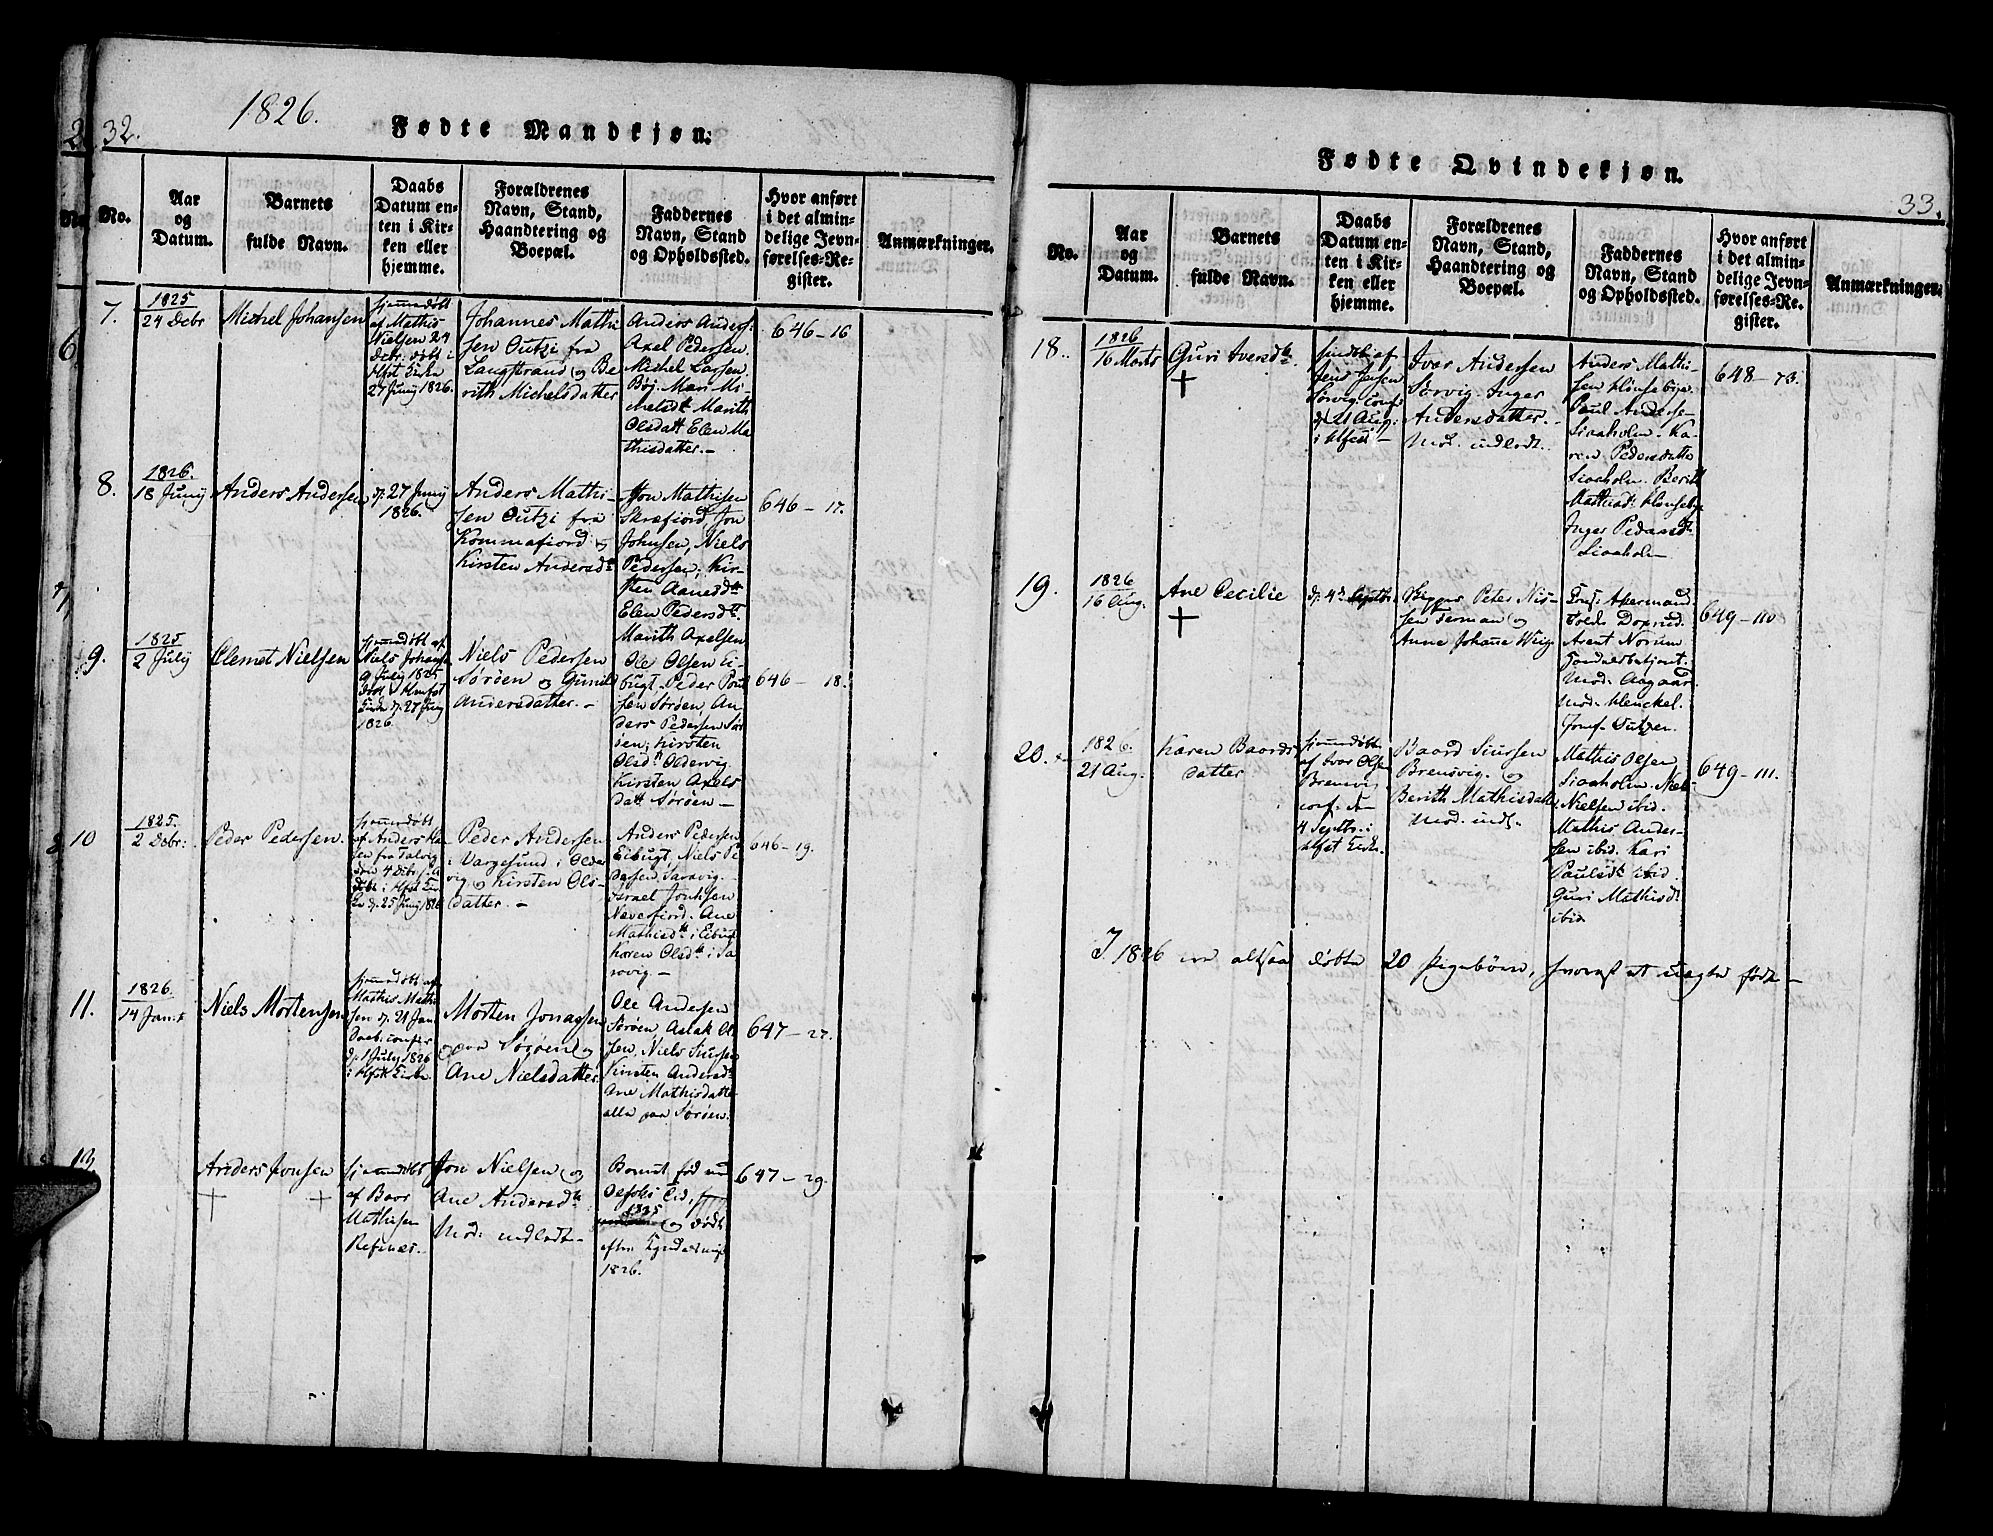 1826.
32.
Fødte Mandkjøn.
No.
Aar
og
Datum.
Barnets
fulde Navn.
Daabs
Datum en-
ten i Kir-
ken eller
hjemme.
Forældrenes
Navn, Stand,
Haandtering og
Boepæl.
Faddernes
Navn, Stand
og Opholdssted.
Hvor anført
i det almin-
delige Jevn-
førelses-Re-
gister.
Anmærkninger.
7.
1825
24 Debr
Michel Johansen
hjemmedøbt
af Mathis
Nielsen 24
Debr. døbt i
Hfst Kirke
27 Juny 1826.
Johannes Mathi
sen Outzi fra
Langstrand og Be
rith Michelsdatter
Anders Anders.
Axel Pedersen.
Michel Larsen
Mari Mi-
chelsdt Marith
Olsdatt Elen Ma
thisdatter.-
646-16
8.
1826.
18 Juny
Anders Andersen
d. 27 Juny
1826.
Anders Mathi-
sen Outzi fra
Kommafiord og
Kirsten Andersdt
Jon Mathisen
Skræfiord, Jon
Johnsen, Niels
Pedersen, Kir-
sten Aanesdtt
Elen Pedersdtt.
Marith Axelsen
646-17.
9.
1825
2 July
Clemet Nielsen
hjemmedøbt af
Niels Johans.
9 July 1825
døbt i Hmfst
Kirke d. 27 Juny
1826.
Niels Pedersen
Sørøen og Gunild
Andersdatter.-
Ole Olsen Ei-
bugt. Peder Poul
sen Sørøen, An-
ders Pedersen Sør
øen, Kirsten
Olsdtt Oldervig
Kirsten Axels
datt Sørøen-
646-18.
10
1825.
2 Debr.
Peder Pedersen.
hjemmedøbt
af Anders Han
sen fra Talvig
den 4 Debr.
døbt i Hfst Kir-
ke d. 25 Juny 1826
Peder Andersen
i Vargesund i Older
vig og Kirsten Ols-
datter.-
Anders Pedersen
Eibugt, Niels Pe
dersen, Saravig.
Israel Jonsen
Nævefiord. Ane
Mathisdtt i Eibugt
Karen Olsdtt i Sa
ravig.-
646-19.
11.
1826.
14 Jan.
Niels Mortensen
hjemmedøbt af
Mathis Mathi
sen d. 21 Jan
Daab. confer
d. 1 July 1826
i Hfst Kirke
Morten Jonassen
paa Sørøen og
Ane Nielsdatter.
Ole Andersen
Sørøen, Aslak Ol
sen, Niels Siursen
Kirsten Andersdtr
Ane Mathisdatter
alle paa Sørøen.
647-27.
Anders Jonsen
hjemmedøbt
af Baar
Mathisen
Refnes.-
Jon Nielsen og
Ane Andersdtt
Mod: indladt-
Barnet fød ved
Olsoks Tid,
1825
og døbt
efter Kyndelmis
1826.
647-29.
33.
Fødte Qvindekjøn.
No.
Aar
og
Datum.
Barnets
fulde Navn.
Daabs
Datum en-
ten i Kir-
ken eller
hjemme.
Forældrenes
Navn, Stand,
Haandtering og
Boepæl.
Faddernes
Navn, Stand
og Opholdssted.
Hvor anført
i det almin-
delige Jevn-
førelses-Re-
gister.
Anmærkninger.
18.
1826
16 Marts
Guri Iversdtr
Jens Jensen
Sørvig. conf
d 21 Aug:
i Hfest-
Ivar Andersen
Sørvig. Inger
Andersdatter.-
Mod. indladt.
Anders Mathi-
sen Klonsebye.
Paul Anders-
Siaaholm. Ka-
ren Pedersdatte
Siaaholm. Berit
Mathisd: Klonseby
Inger Pedersdt
Siaaholm
648-73.
19.
1826
16 Aug.
Ane Cecilie
d. 4de Septbr.
Peter Nis-
sen Ferman og
Anne Johanne Wiig
Prost Akermand.
Foldt Doxrud.
Arent Norum
Handelsbetjent.
Mad. Aagaard
Mad. Klenckel.
Jomf. Tutzen.
649-110
20.
1826.
21 Aug.
Karen Baards
datter
hjemmedøbt
af Ivar Olsen
Brensvig
conf. d.
4 Septbr. i
Hfst Kirke.
Baard Siursen
Brensvig. og
Berith Mathisdatte
Mod. indl.
Mathis Olsen
Siaaholm. Niels
Nielsen ibid.
Mathis Ander-
sen ibid. Kari
Paulsdt ibid.
Guri Mathisdt
ibid
649-111.
I 1826 ere altsaa døbte 20 Pigebørn, hvoraf et uægte født-